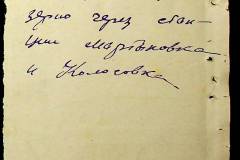 зерно через стан-
ции Мартыновка
и Колосовка